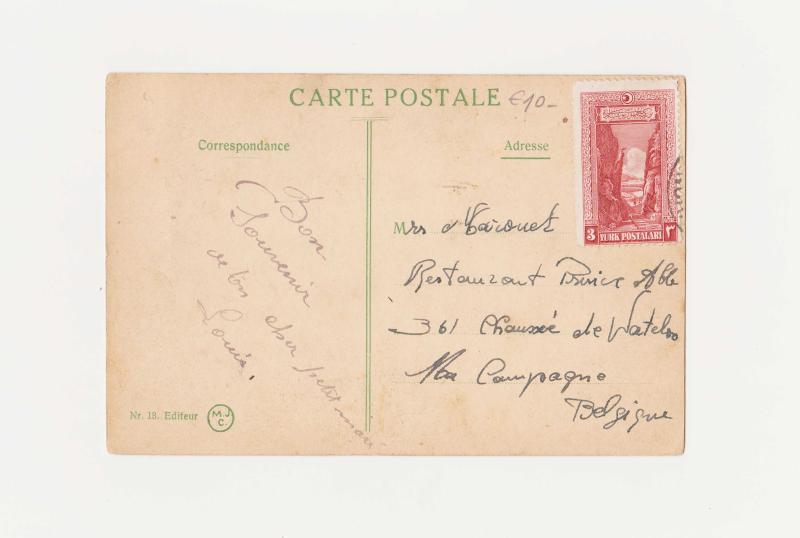 CARTE POSTALE
€10-
Correspondance
Adresse
Bon
Souvenir
de ton cher petit mari
Louis.
Mrs
Restaurant
361 Chaussée de Waterloo
Ma Campagne
Belgique
3 TURK POSTALARI ٣
Nr. 18. Editeur
M.J.C.